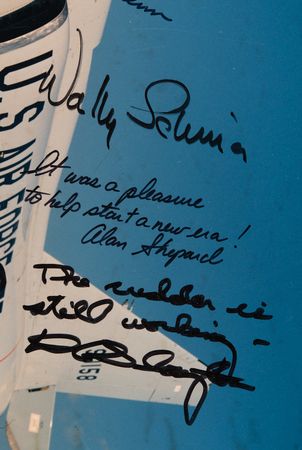 Wally Schirra
It was a pleasure
to help start a new era!
Alan Shepard
The rudder is
still working -
U.S. AIR FORCE